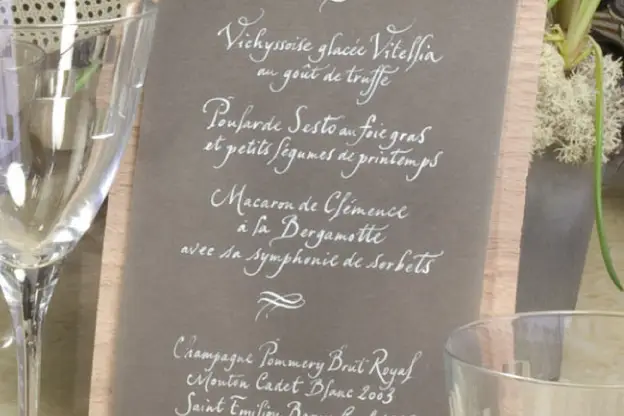 Vichyssoise glacée Vitellia
au goût de truffe
Poularde Sesto au foie gras
et petits légumes de printemps
Macaron de Clémence
à la Bergamotte
avec sa symphonie de sorbets
Champagne Pommery Brut Royal
Mouton Cadet Blanc 2003
Saint Emilion